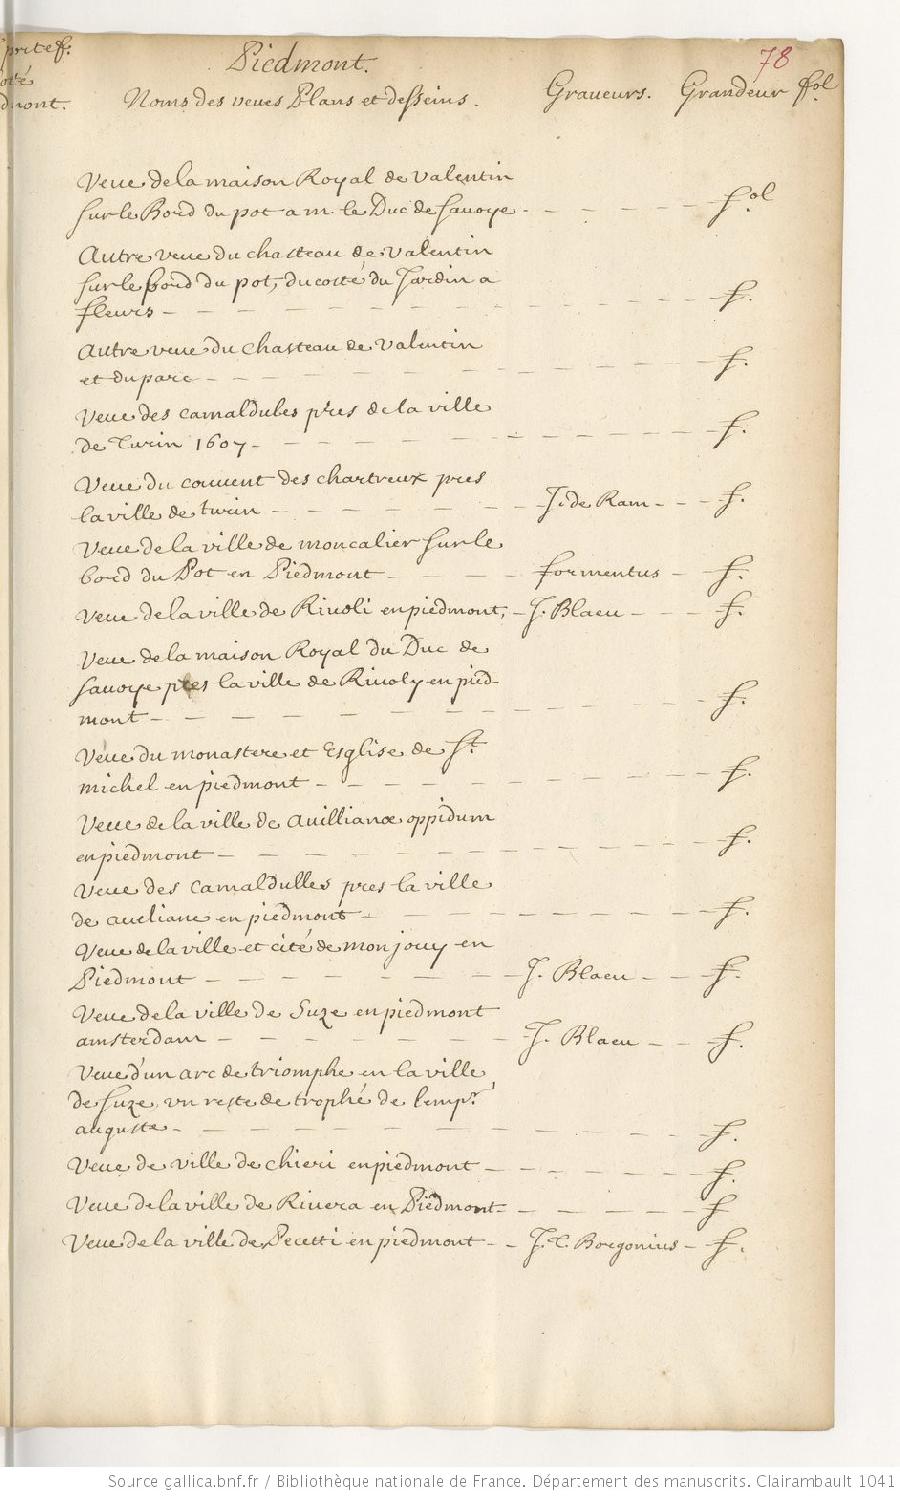 Piedmont. 78
Noms des veues Plans et desseins. Graveurs. Grandeur fol
Veue de la maison Royal de valentin
sur le Bord du pot a m. le Duc de Savoye - - - - fol
Autre veue du chasteau de valentin
sur le bord du pot, du costé du Jardin a
fleurs - - - - f.
Autre veue du chasteau de valentin
et du parc - - - - f.
Veue des camaldules pres de la ville
de Turin 1607 - - - - f.
Veue du couvent des chartreux pres
la ville de turin - - - - J. de Ram - - f.
Veue de la ville de moncalier sur le
bord du Pot en Piedmont - - - formentus - f.
Veue de la ville de Rivoli en piedmont, - J. Blaeu - - f.
Veue de la maison Royal du Duc de
Savoye pres la ville de Rivoly en pied-
mont - - - - f.
Veue du monastere et Esglise de St
michel en piedmont - - - - f.
Veue de la ville de avillianæ oppidum
en piedmont - - - - f.
Veue des camaldulles pres la ville
de aveliane en piedmont - - - - f.
Veue de la ville et cité de monjouy en
Piedmont - - - - J. Blaeu - - f.
Veue de la ville de Suze en piedmont
amsterdam - - - - J. Blaeu - - f.
Veue d'un arc de triomphe en la ville
de Suze, vn reste de trophé de l'empr
auguste - - - - f.
Veue de ville de chieri en piedmont - - - - f.
Veue de la ville de Rivera en Piedmont - - - - f
Veue de la ville de Pecetti en piedmont - - J. C. Borgonius - f.
Source gallica.bnf.fr / Bibliothèque nationale de France. Département des manuscrits. Clairambault 1041